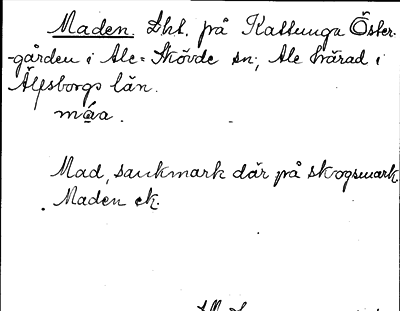 Maden. Lht. på Kattunga Öster-
-gården i Ale-Skövde sn; Ale härad i
Älfsborgs län.
måa.
Mad, sankmark där på skogsmark.
Maden ek.